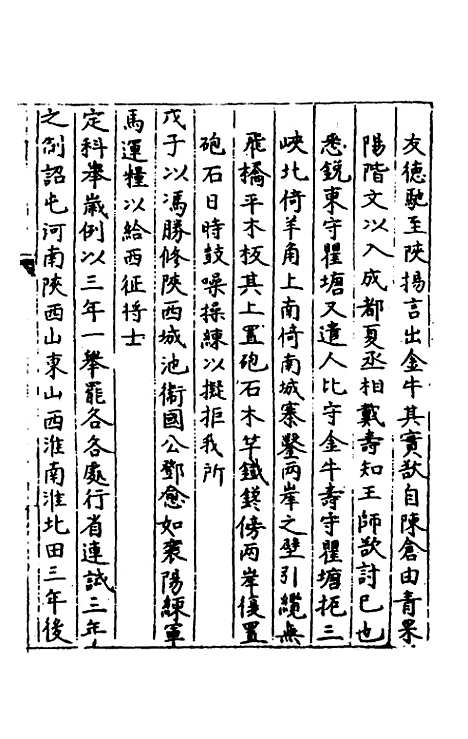 友德馳至陝揚言出金牛其實欲自陳倉由青果
陽階文以入成都夏丞相戴壽知王師欲討已也
悉銳東守瞿塘又遣人北守金牛壽守瞿塘扼三
峽北倚羊角上南倚南城寨鑿兩岸之壁引纜為
飛橋平木板其上置砲石木竿鐵鎈傍兩岸復置
砲石日時鼓噪操練以擬拒我所
戊子以馮勝修陝西城池衞國公鄧愈如襄陽練軍
馬運糧以給西征將士
定科舉歲例以三年一舉罷各各處行省連試三年
之制詔屯河南陝西山東山西淮南淮北田三年後